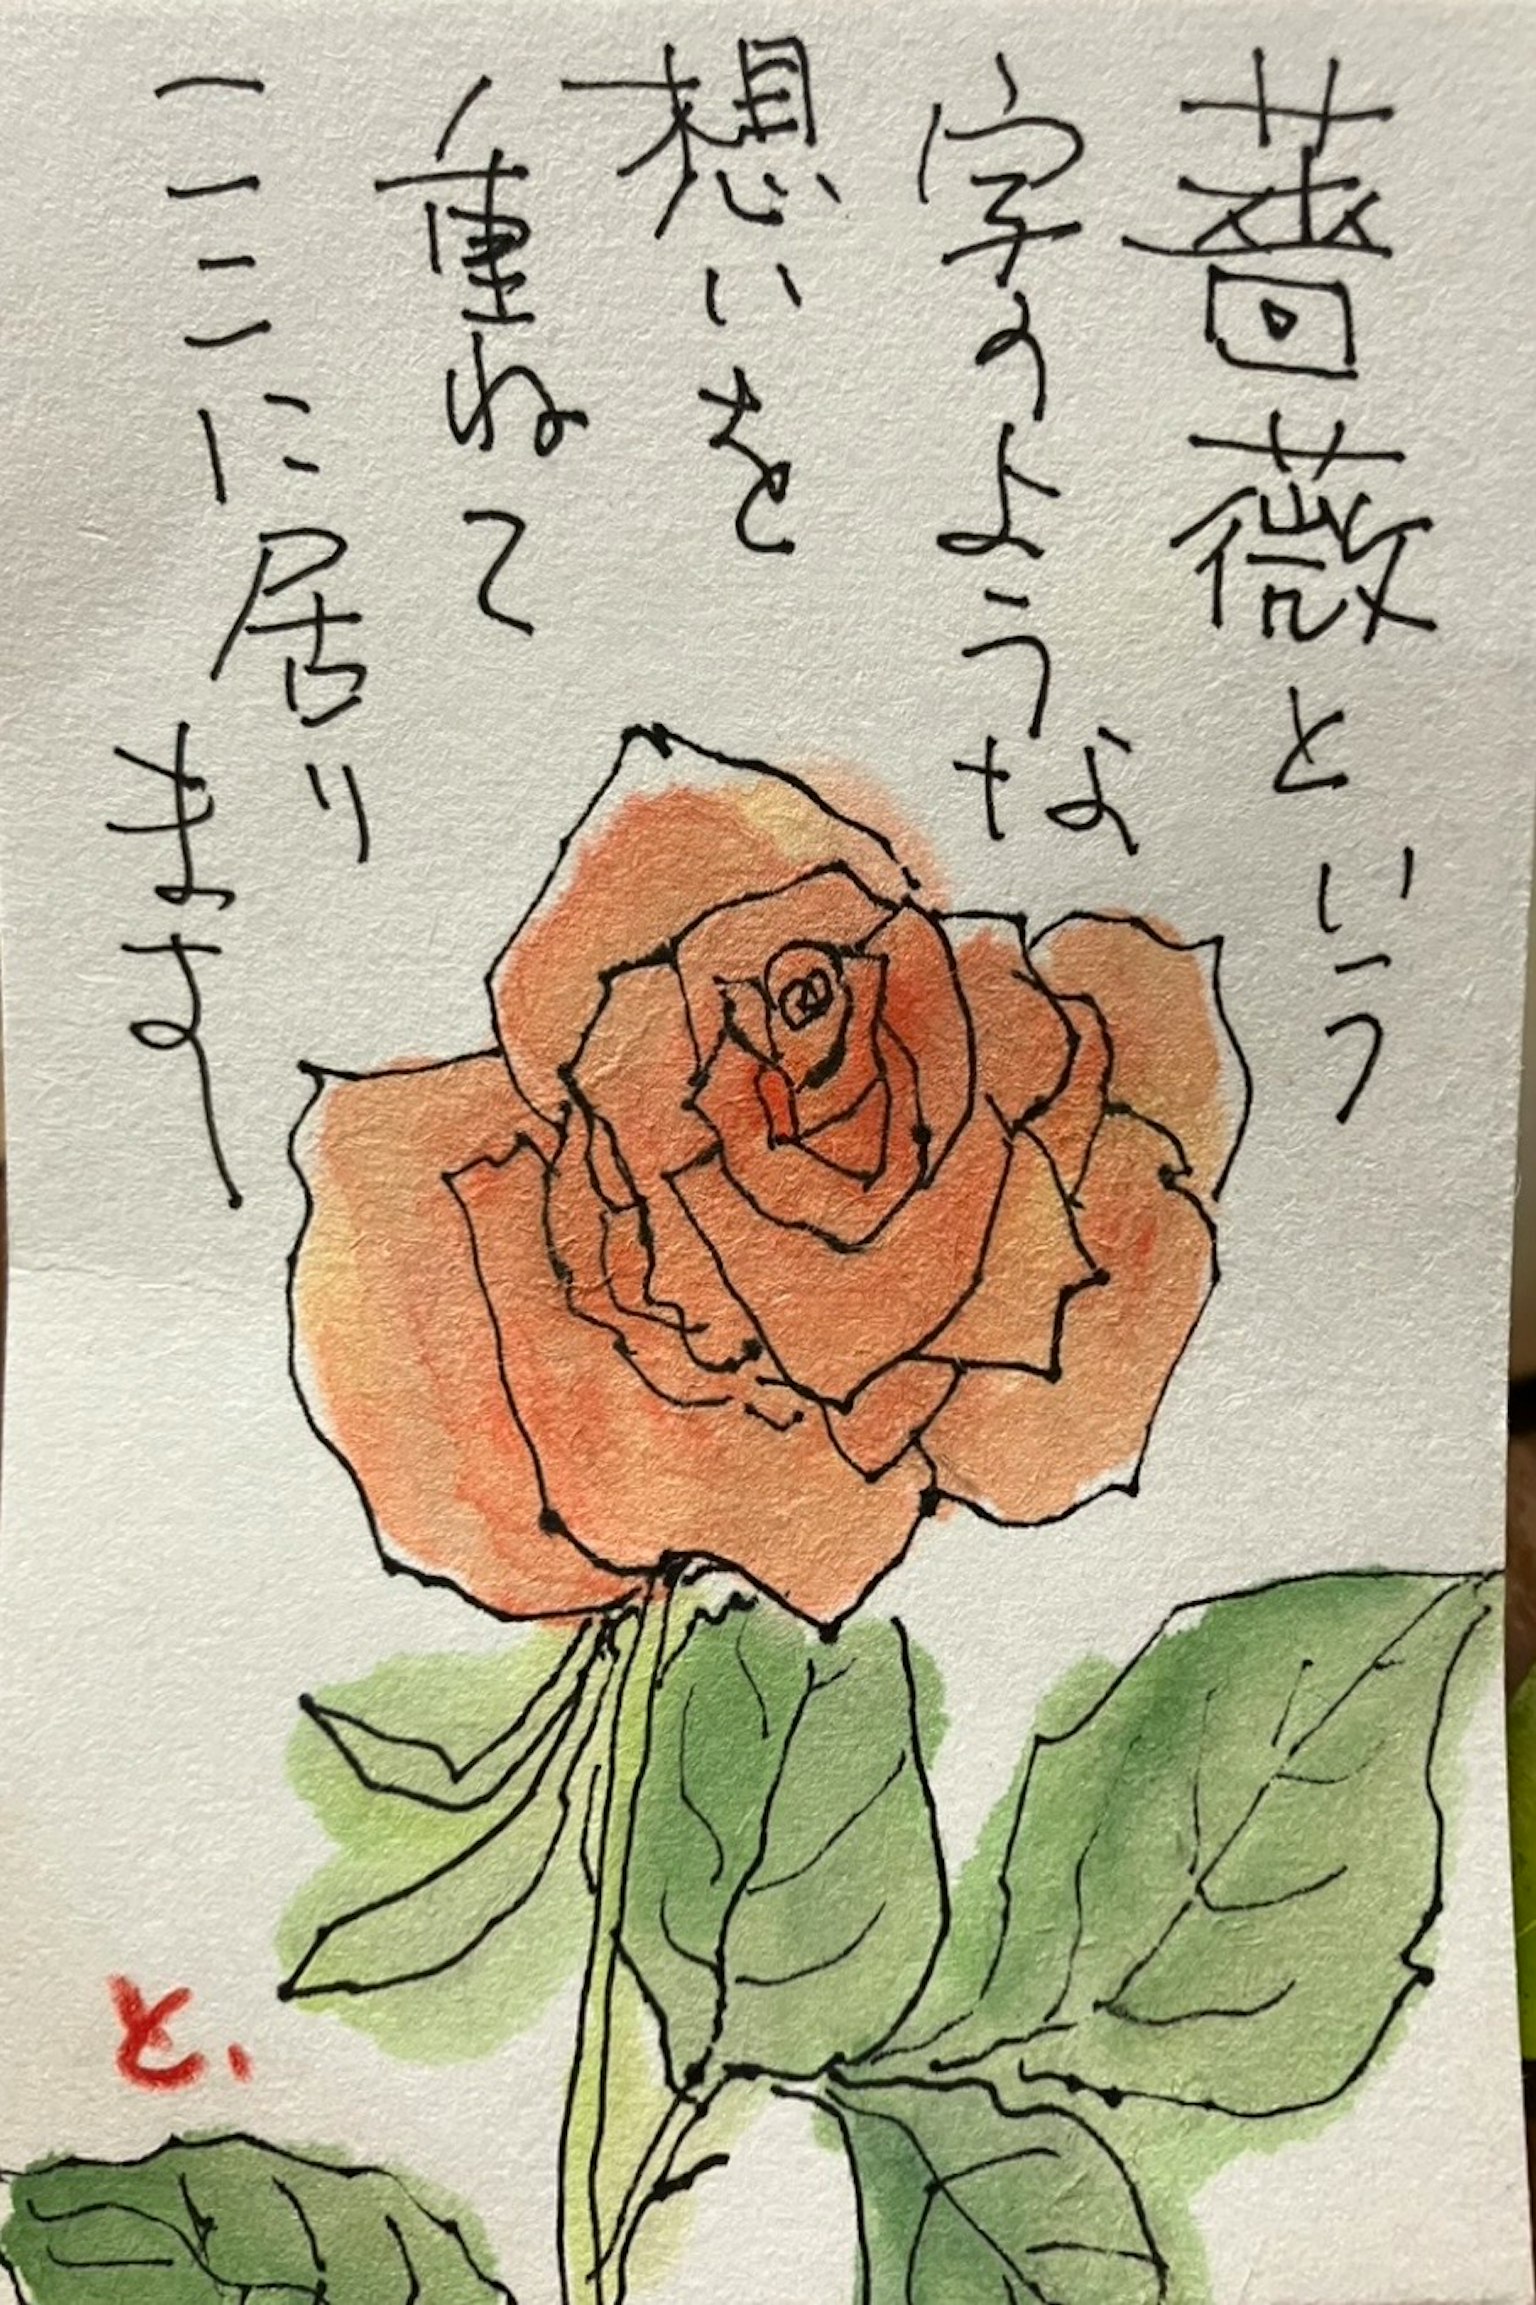 薔薇という
字のような
想いを
重ねて
ここに居り
ます
と.